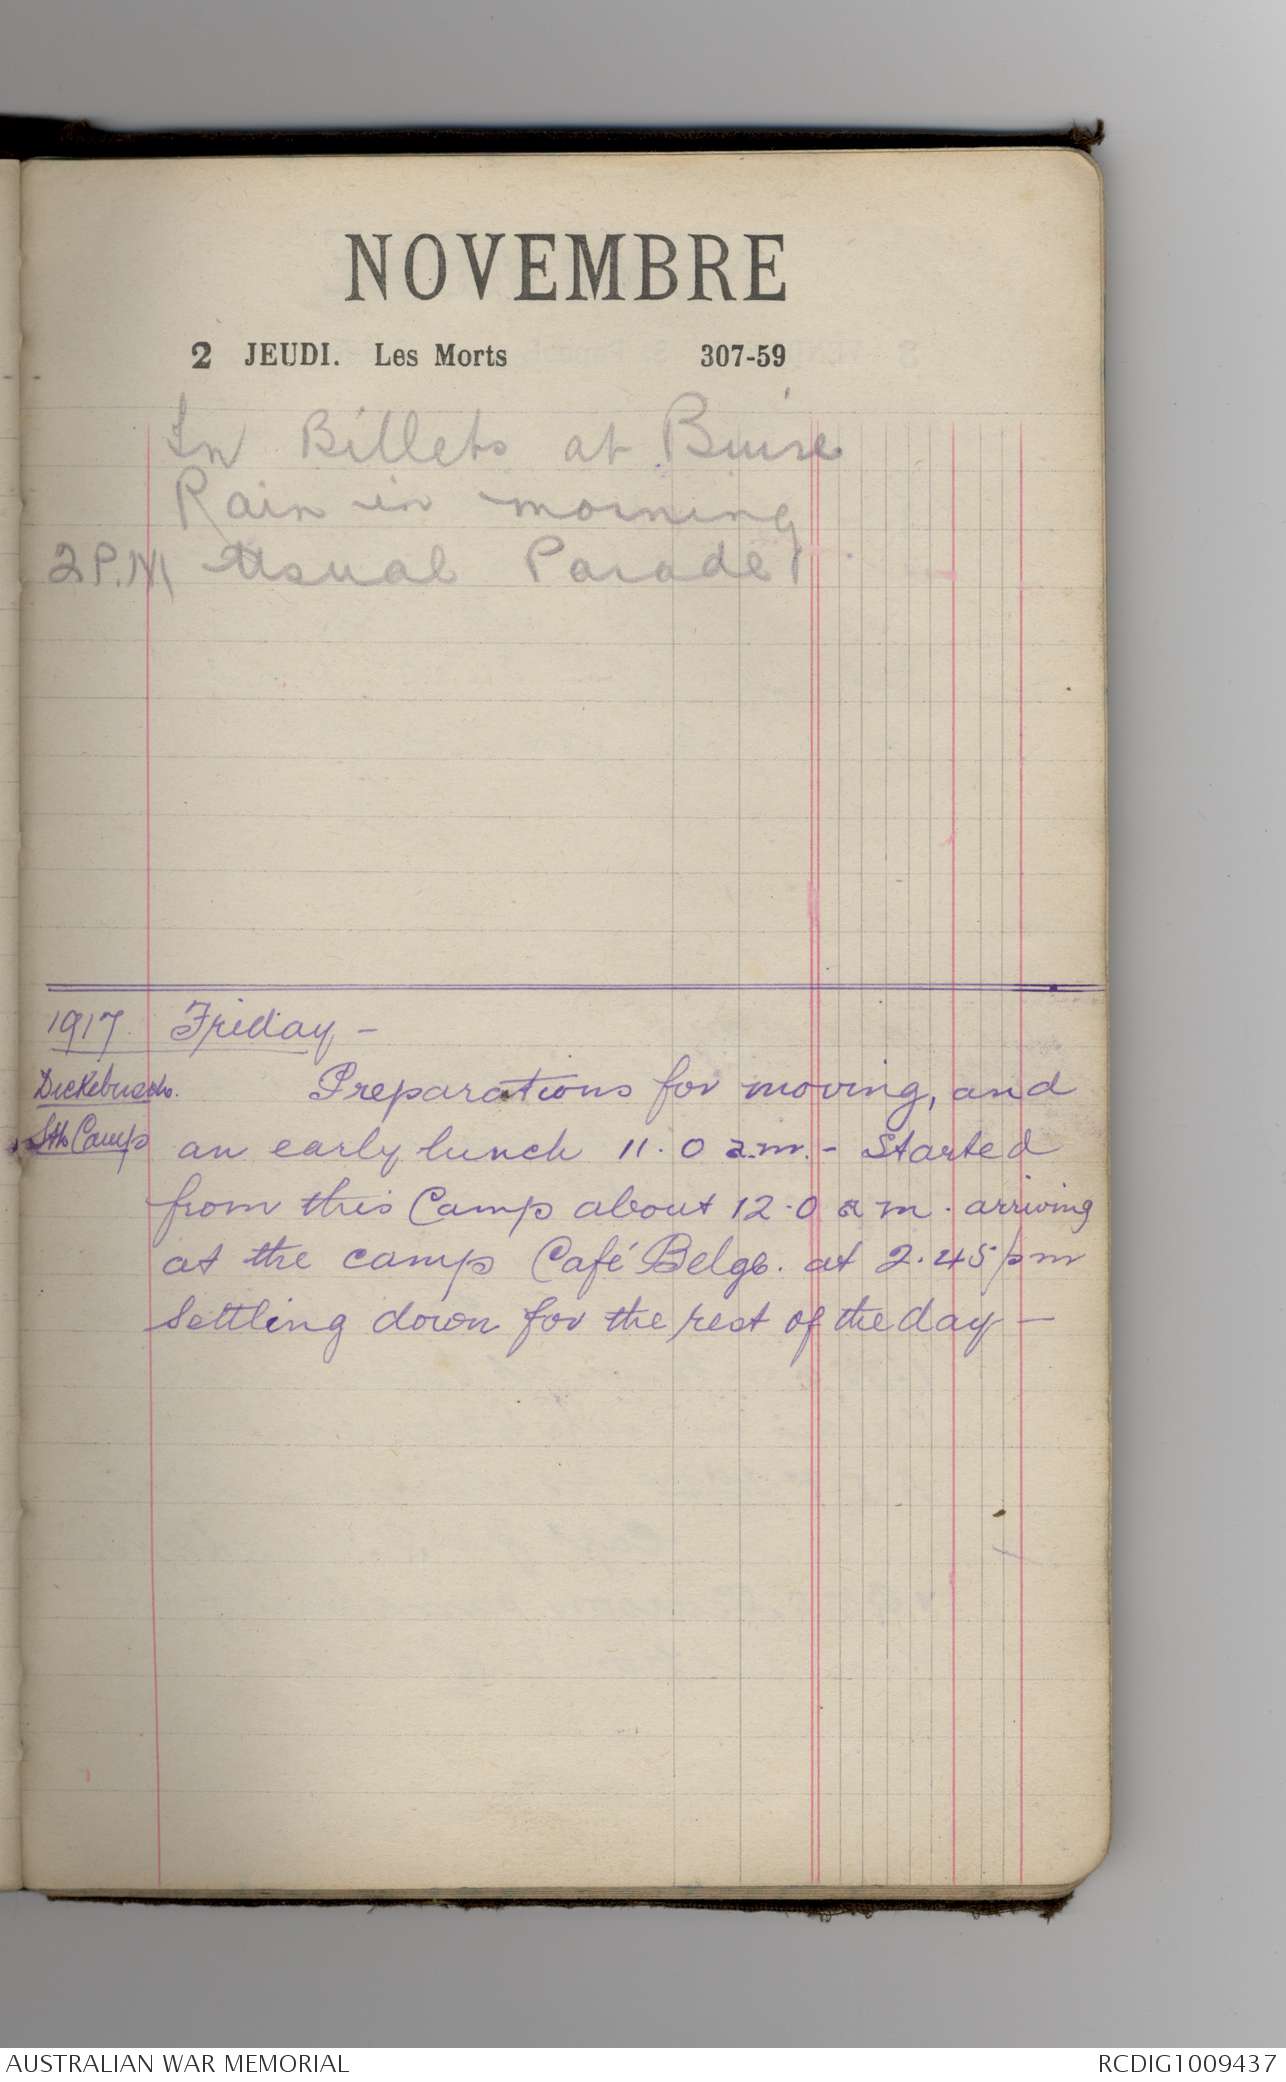 NOVEMBRE
2 JEUDI. Les Morts 307-59
In Billets at Buire
Rain in morning
2 P.M Usual Parade
1917. Friday -
Dickebusch. Preparations for moving, and
Sth Camp an early lunch 11.0 a.m. - Started
from this Camp about 12.0 a m. arriving
at the camp Café Belge. at 2.45 pm
Settling down for the rest of the day -
AUSTRALIAN WAR MEMORIAL RCDIG1009437